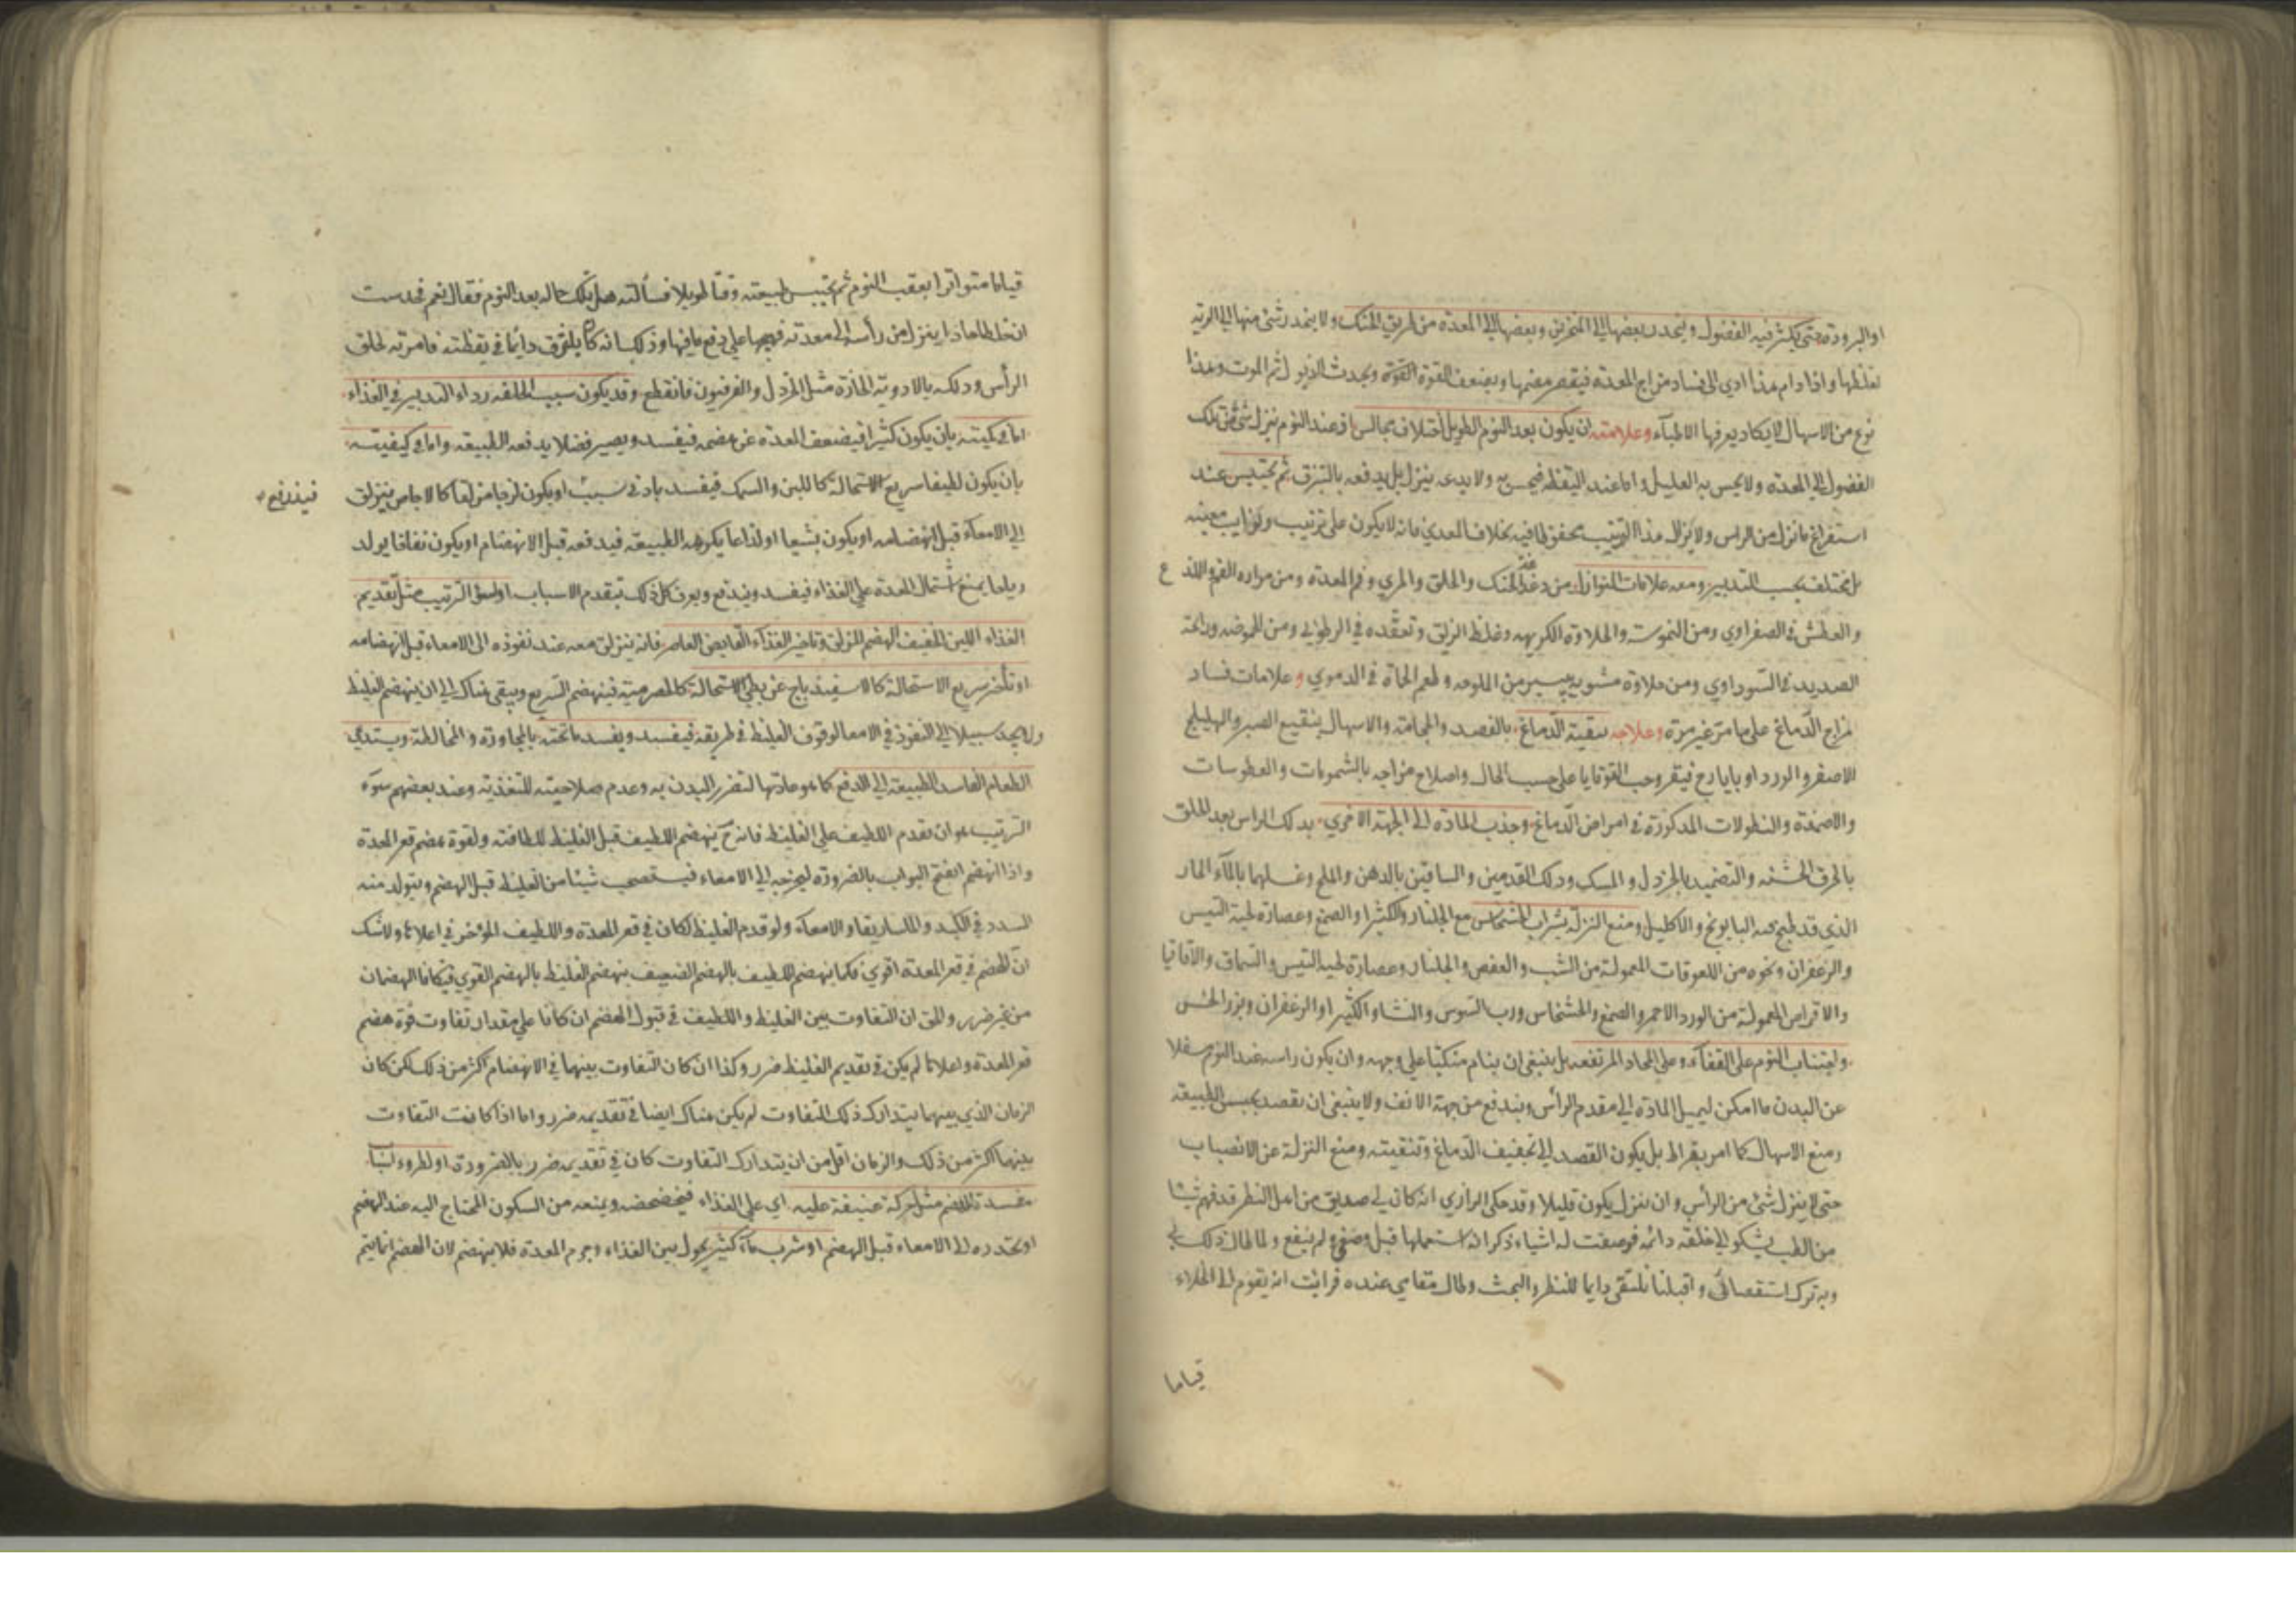 او البرودة حتى يكثر فيه الفضول وينحدر بعضها الى المنخرين وبعضها الى المعدة من طريق الحنك ولا ينحدر شئ منها الى الرية
لغلظها واذا دام هذا ادي الى فساد مزاج المعدة فيقصر هضمها ويضعف القوة ويحدث الذبول ثم الموت وهذا
نوع من الاسهال لا يكاد يعرفها الاطباء وعلامته ان يكون بعد النوم الطويل اختلاف مجالس اذ عند النوم ينزل شئ من تلك
الفضول الى المعدة ولا يحس به العليل واما عند اليقظة فيحس به ولا يدعه ينزل بل يدفعه بالتبزق ثم يحتبس عند
استفراغ ما نزل من الراس ولا يزال هذا الترتيب محفوظا فيه بخلاف المعدي فانه لا يكون على ترتيب ونوايب معينه
بل يختلف بحسب التدبير ومعه علامات النوازل من دغدغة الحنك والحلق والمري وفم المعدة ومن مرارة الفم واللذع
والعطش في الصفراوي ومن الحلاوة الكريهه وغلظ الزلق وتعقده في الرطوبي ومن الحموضه ورائحة
الصديد في السوداوي ومن حلاوة مشوبه بيسير من الملوحه وطعم الحماة في الدموي وعلامات فساد
مزاج الدماغ على ما مر غير مرة وعلاجه تنقية الدماغ بالفصد والحجامة والاسهال بنقيع الصبر والهليلج
الاصفر والورد او بايارج فيقرا وحب القوقايا على حسب الحال واصلاح مزاجه بالشمومات والعطوسات
والاضمدة والنطولات المذكورة في امراض الدماغ وجذب المادة الى الجهة الاخري بدلك الراس بعد الحلق
بالخرق الخشنه والتضميد بالخردل والمسك ودلك القدمين والساقين بالدهن والملح وغسلهما بالماء الحار
الذي قد طبخ فيه البابونج والاكليل ومنع النزلة بشراب الخشخاش مع الجلنار والكثيرا والصمغ وعصارة لحية التيس
والزعفران ونحوه من اللعوقات المعمولة من الشب والعفص والجلنار وعصارة لحية التيس والسماق والاقاقيا
والاقراص المعمولة من الورد الاحمر والصمغ والخشخاش ورب السوس والنشا والكثيرا والزعفران وبزر الخس
واجتناب النوم على القفاء وعلى المخاد المرتفعه بل ينبغى ان ينام منكبا على وجهه وان يكون راسه عند النوم سفلا
عن البدن ما امكن ليميل المادة الى مقدم الرأس ويندفع من جهة الانف ولا ينبغى ان يقصد بحبس الطبيعة
ومنع الاسهال كما امر بقراط بل يكون القصد الى تجفيف الدماغ وتنقيته ومنع النزلة عن الانصباب
حتى لا ينزل شئ من الرأس وان ينزل يكون قليلا وقد حكى الرازي انه كان لي صديق من اهل النظر قد فهم شيئا
من الطب يشكو الي خلفة دائمه فوصفت له اشياء ذكر انه استعملها قبل وصفي ولم ينفع ولما طال ذلك
وبه ترك استقصائي واقبلنا نلتقى دايما للنظر والبحث وطال مقامي عنده فرايت انه يقوم الى الخلاء
قياما
قياما متواترا بعقب النوم ثم تحتبس طبيعته وقتا طويلا فسألته هل تلك حاله بعد النوم فقال نعم فحدست
ان خلطا حادا ينزل من رأسه الى معدته فيهيجها على دفع ما فيها وذلك انه كان يتغرغر دائما في يقظته فامرته بحلق
الرأس ودلكه بالادوية الحارة مثل الخردل والفرفيون فانقطع وقد يكون سبب الخلفه رداء التدبير في الغذاء
اما في كميته بان يكون كثيرا فيضعف المعدة عن هضمه فيفسد ويصير فضلا يدفعه الطبيعه واما في كيفيته
بان يكون لطيفا سريع الاستحالة كاللبن والسمك فيفسد بادنى سبب او يكون لزجا مزلقا كالاجاص ينزلق
فيندفع
الى الامعاء قبل انهضامه او يكون بشيعا او لذاعا يكرهه الطبيعه فيدفعه قبل الانهضام او يكون نفاخا يولد
رياحا يمنع اشتمال المعدة على الغذاء فيفسد ويندفع ويعرف كل ذلك بتقدم الاسباب او لسوء الترتيب مثل تقديم
الغذاء اللين الخفيف الهضم المزلق وتاخير الغذاء القابض العاصر فانه ينزلق معه عند نفوذه الى الامعاء قبل انهضامه
او تأخر سريع الاستحالة كالاسفيدباج عن بطي الاستحالة كالحصرمية فينهضم السريع ويبقى هناك الى ان ينهضم الغليظ
ولا يجد سبيلا الى النفوذ في الامعا لوقوف الغليظ في طريقه فيفسد ويفسد ما تحته بالمجاورة والمخالطة ويستدعي
الطعام الفاسد الطبيعة الى الدفع كما هو عادتها لتضرر البدن به وعدم صلاحيته للتغذية وعند بعضهم سوء
الترتيب هو ان تقدم اللطيف على الغليظ فانه ح ينهضم اللطيف قبل الغليظ للطافته ولقوة هضم قعر المعدة
واذا انهضم انفتح البواب بالضرورة ليخرجه الى الامعاء فيستصحب شيئا من الغليظ قبل الهضم ويتولد منه
السدد في الكبد والماساريقا والامعاء ولو قدم الغليظ لكان في قعر المعدة واللطيف المؤخر في اعلاها ولا شك
ان الهضم في قعر المعدة اقوي فكما ينهضم اللطيف بالهضم الضعيف ينهضم الغليظ بالهضم القوي فيتكافا الهضمان
من غير ضرر والحق ان التفاوت بين الغليظ واللطيف في قبول الهضم ان كانا على مقدار تفاوت قوة هضم
قعر المعدة واعلاها لم يكن في تقديم الغليظ ضرر وكذا ان كان التفاوت بينهما في الانهضام اكثر من ذلك لكن كان
الزمان الذي بينهما يتدارك ذلك التفاوت لم يكن هناك ايضا في تقديمه ضرر واما اذا كانت التفاوت
بينهما اكثر من ذلك والزمان اقل من ان يتدارك التفاوت كان في تقديمه ضرر بالضرورة او لطروء اسباب
مفسدة للهضم مثل حركة عنيفة عليه اي على الغذاء فيخضخضه ويمنعه من السكون المحتاج اليه عند الهضم
او تحدره الى الامعاء قبل الهضم او شرب ماء كثير يحول بين الغذاء وجرم المعدة فلا ينهضم لان الهضم انما يتم